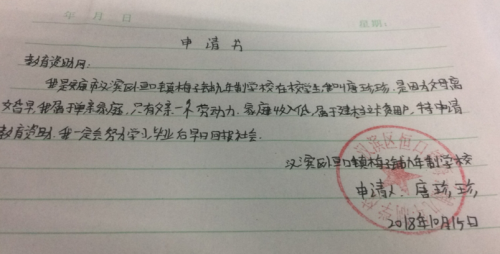 年 月 日 星期:
申请书
教育资助局:
我是安康市汉滨区恒口镇梅子铺九年制学校在校学生,我叫唐珍珍,是因为父母离
家庭,只有父亲一个劳动力,家庭收入低,属于建档立卡贫困户,特申请
教育资助,我一定会努力学习,毕业后早日回报社会.
汉滨区恒口镇梅子铺九年制学校
申请人:唐珍珍
2018年10月15日